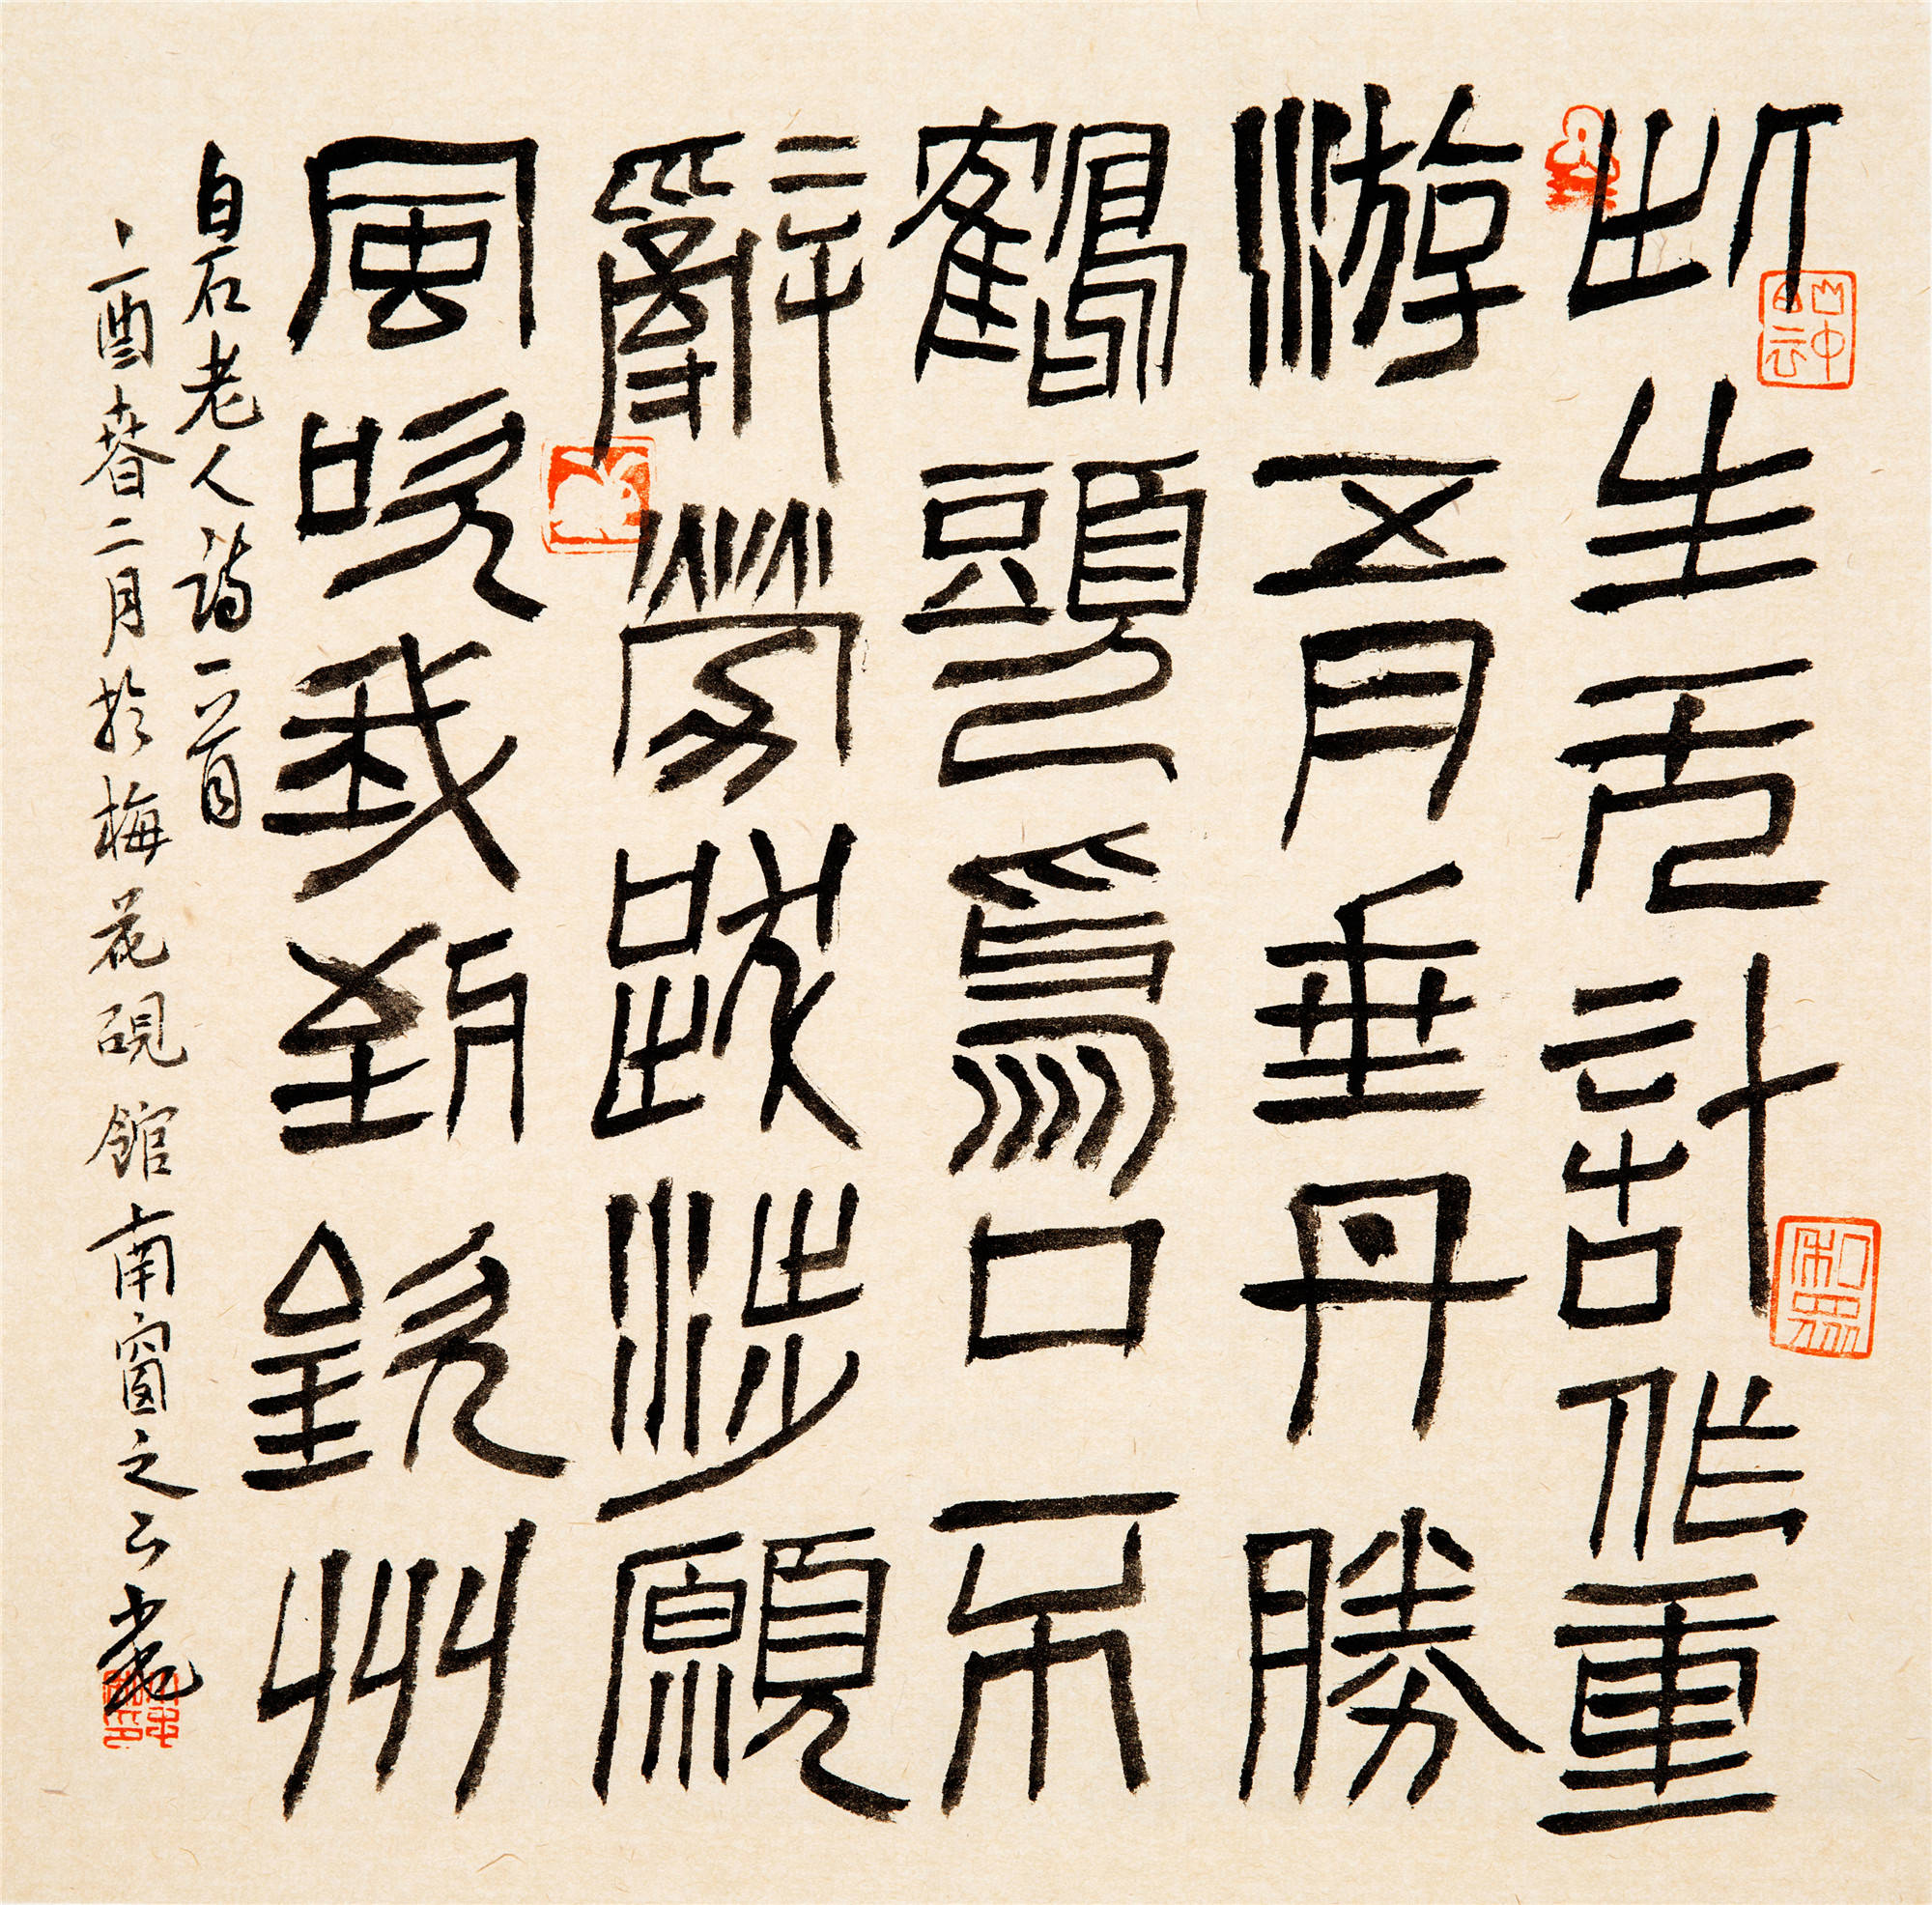 此生无計作重
游五月垂丹勝
鶴頭爲口不
辭勞跋涉願
風吹我到欽州
白石老人詩一首
酉春二月於梅花硯館南窗之